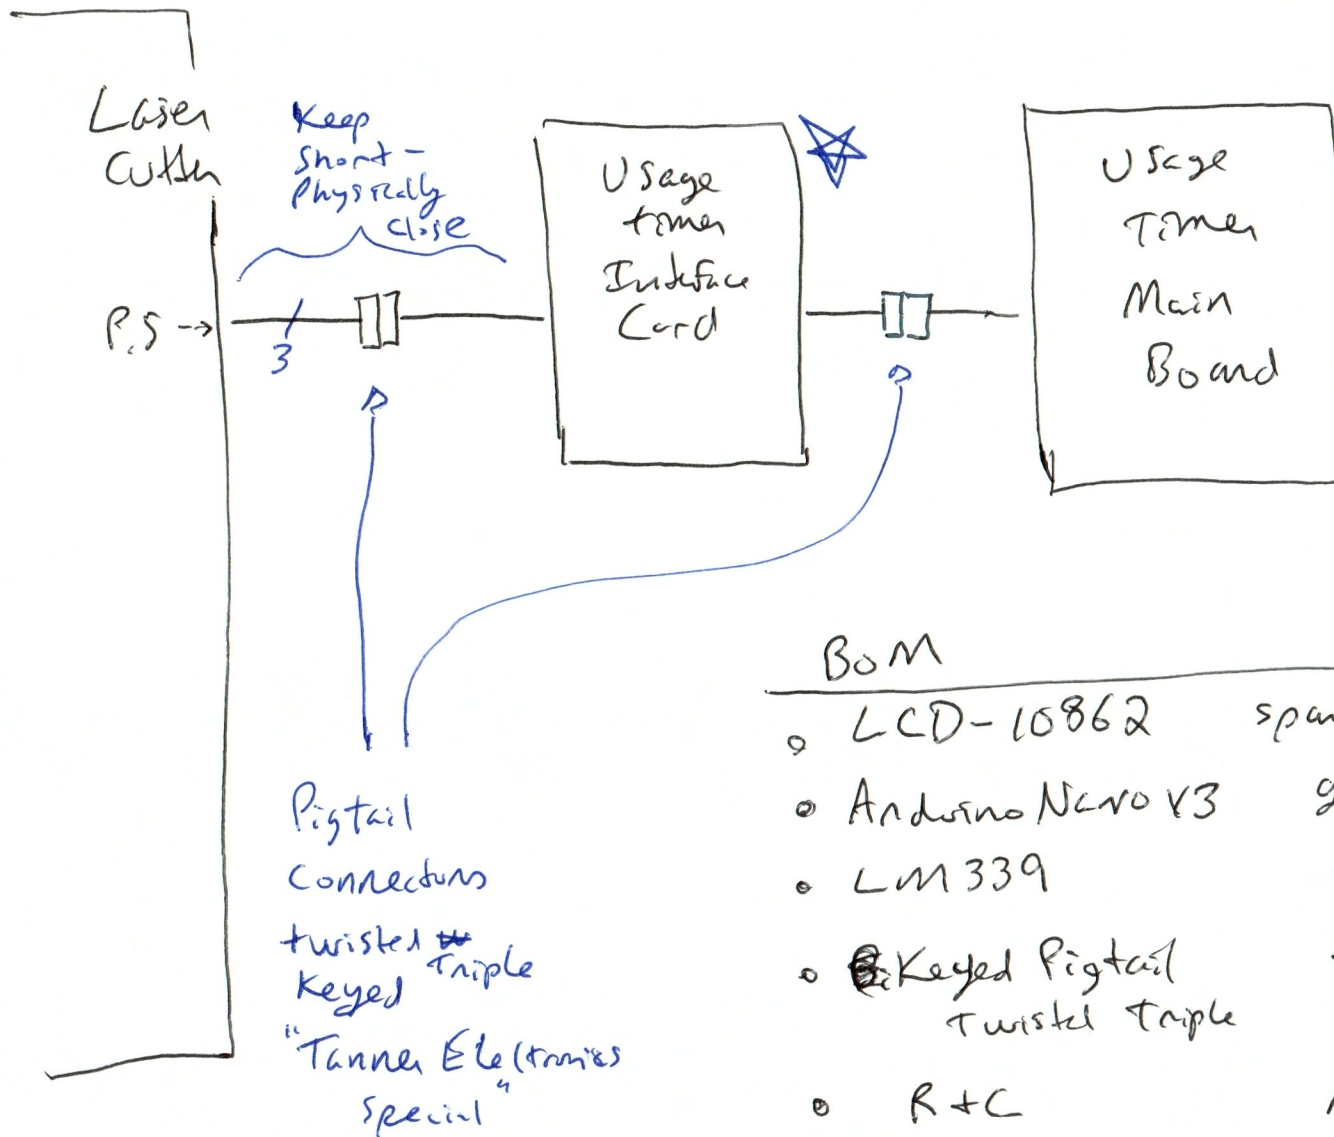 Laser
Cutter
P.S →
Keep
Short -
Physically
close
3
Usage
timer
Interface
Card
Usage
Timer
Main
Board
Pigtail
Connectors
twisted Triple
Keyed
"Tanner Electronics
Special"
BoM
LCD-10862
Arduino Nano V3
LM339
Keyed Pigtail
Twisted Triple
R+C